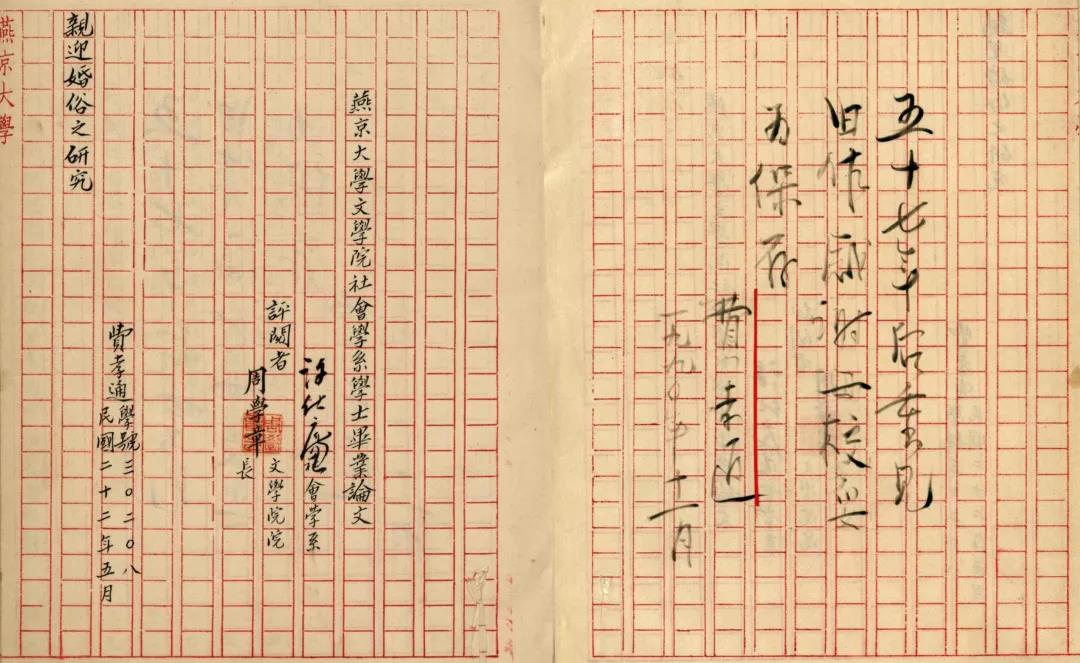 五十七年后重见
旧作诚谢母校
为保存
费孝通
一九九〇年十一月
燕京大學文學院社會學系學士畢業論文
許仕廉 社會学系
評閱者 文學院院
周學章 長
學號三〇二〇〇八
費孝通
民國二十二年五月
親迎婚俗之研究
燕京大學